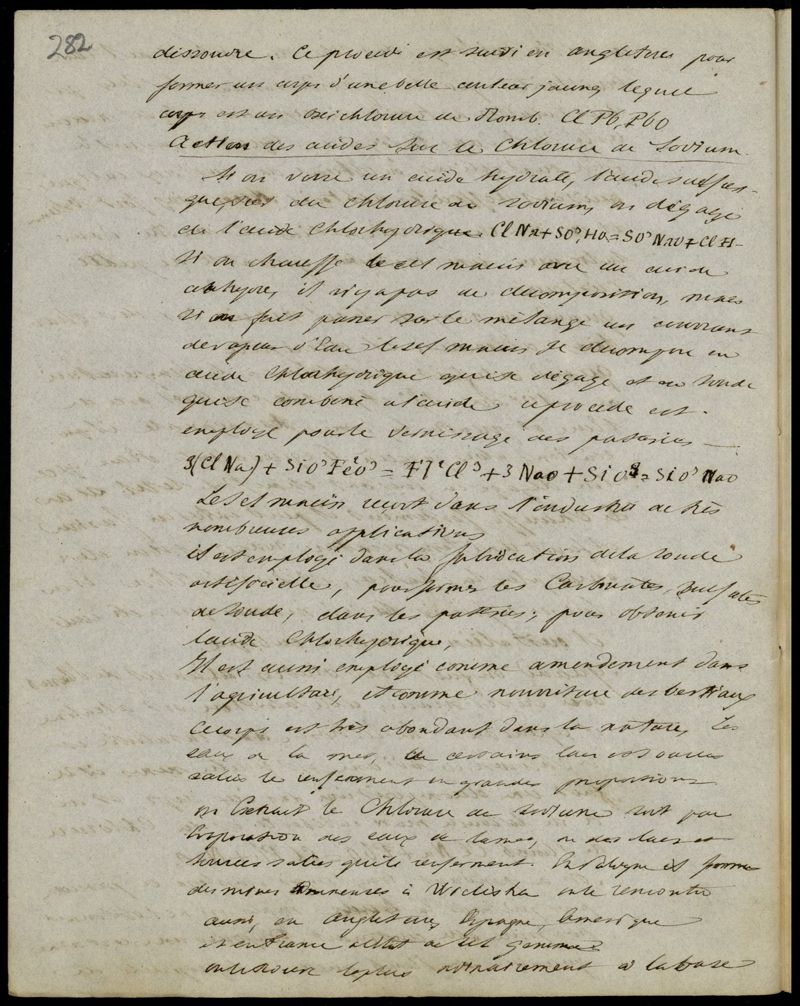 282
dissoudre. Ce procédé est suivi en angleterre pour
former un corps d'une belle couleur jaune, lequel
corps est un oxichlorure de Plomb. Cl Pb, Pb O
Action des acides sur le Chlorure de Sodium.
Si on verse un acide hydraté, l'acide sulfuri-
que, sur du chlorure de sodium, on dégage
de l'acide Chlorhydrique. Cl Na + SO³, Ho = SO³ Nao + Cl H-
Si on chauffe le sel marin avec un acide
anhydre, il n'y a pas de décomposition, mais
si on fait passer sur le mélange un courant
de vapeur d'Eau le sel marin se décompose en
acide Chlorhydrique qui se dégage et en soude
qui se combine a l'acide ce procédé est
employé pour le vernissage des poteries —
3(Cl Na) + Sio³ Fe²o³ = Fl² Cl³ + 3 Nao + Sio³ = Sio³ Nao
Le sel marin reçoit dans l'industrie de très
nombreuses applications
il est employé dans la fabrication de la soude
artificielle, pour former les Carbonates, Sulfates
de soude, dans les poteries; pour obtenir
l'acide Chlorhydrique,
Il est aussi employé comme amendement dans
l'agriculture, et comme nourriture des bestiaux
Ce corps est très abondant dans la nature, Les
eaux de la mer, de certains lacs ou sources
salées le renferment en grandes proportions
on Extrait le Chlorure de sodium soit par
évaporation des eaux de la mer, ou des lacs et
sources salées qui le renferment. En Pologne il forme
des mines immenses à Wieliska on le rencontre
aussi, en angleterre, Espagne, Amerique
et en France a l'état de sel gemme
on le trouve le plus ordinairement à la base